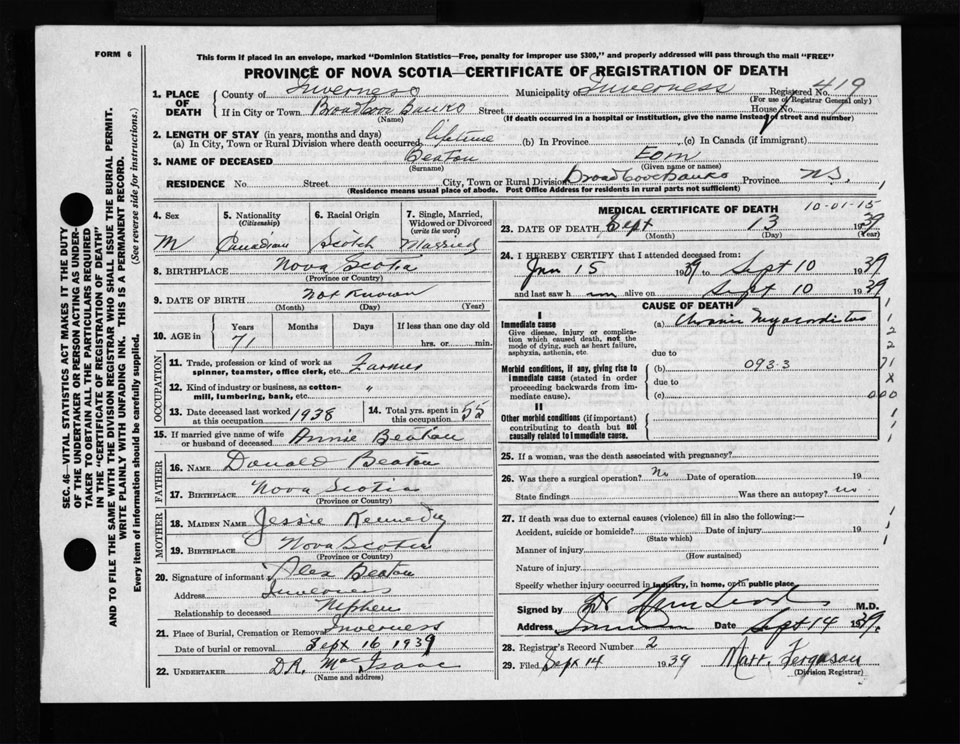 FORM 6
This form if placed in an envelope, marked "Dominion Statistics—Free, penalty for improper use $300," and properly addressed will pass through the mail "FREE"
PROVINCE OF NOVA SCOTIA—CERTIFICATE OF REGISTRATION OF DEATH
1. PLACE OF DEATH
County of Inverness Municipality of Inverness Registered No. 419
(For use of Registrar General only)
If in City or Town Broad Cove Banks Street House No.
(Name) (If death occurred in a hospital or institution, give the name instead of street and number)
2. LENGTH OF STAY (in years, months and days)
(a) In City, Town or Rural Division where death occurred lifetime (b) In Province (c) In Canada (if immigrant)
3. NAME OF DECEASED Beaton
(Surname) (Given name or names)
RESIDENCE No. Street City, Town or Rural Division Broad Cove Banks Province N.S.
(Residence means usual place of abode. Post Office Address for residents in rural parts not sufficient)
4. Sex M
5. Nationality (Citizenship) Canadian
6. Racial Origin Scotch
7. Single, Married, Widowed or Divorced (write the word) Married
8. BIRTHPLACE Nova Scotia
(Province or Country)
9. DATE OF BIRTH Not Known
(Month) (Day) (Year)
10. AGE in Years Months Days If less than one day old
71 hrs. or min.
OCCUPATION
11. Trade, profession or kind of work as spinner, teamster, office clerk, etc. Farmer
12. Kind of industry or business, as cotton-mill, lumbering, bank, etc. "
13. Date deceased last worked at this occupation 1938
14. Total yrs. spent in this occupation 55
15. If married give name of wife or husband of deceased Annie Beaton
FATHER
16. NAME Donald Beaton
17. BIRTHPLACE Nova Scotia
(Province or Country)
MOTHER
18. MAIDEN NAME Jessie Kennedy
19. BIRTHPLACE Nova Scotia
(Province or Country)
20. Signature of informant Alex Beaton
Address Inverness
Relationship to deceased Nephew
21. Place of Burial, Cremation or Removal Inverness
Date of burial or removal Sept 16 1939
22. UNDERTAKER D.R. Mac Isaac
(Name and address)
MEDICAL CERTIFICATE OF DEATH 10-01-15
23. DATE OF DEATH Sept 13 1939
(Month) (Day) (Year)
24. I HEREBY CERTIFY that I attended deceased from:
Jan 15 1939 to Sept 10 1939
and last saw h im alive on Sept 10 1939
CAUSE OF DEATH
I
Immediate cause (a) Chronic Myocarditis
Give disease, injury or complication which caused death, not the mode of dying, such as heart failure, asphyxia, asthenia, etc.
due to
Morbid conditions, if any, giving rise to immediate cause (stated in order proceeding backwards from immediate cause).
(b) 093-3
due to
(c)
II
Other morbid conditions (if important) contributing to death but not causally related to immediate cause.
1
1
2
2
71
X
000
1
1
1
25. If a woman, was the death associated with pregnancy?
26. Was there a surgical operation? No Date of operation 19
State findings Was there an autopsy? no
27. If death was due to external causes (violence) fill in also the following:—
Accident, suicide or homicide? Date of injury 19
(State which)
Manner of injury
(How sustained)
Nature of injury
Specify whether injury occurred in industry, in home, or in public place
Signed by Dr M.D.
Address Date Sept 14 1939.
28. Registrar's Record Number 2
29. Filed Sept 14 1939 Ferguson
(Division Registrar)
SEC. 46—VITAL STATISTICS ACT MAKES IT THE DUTY
OF THE UNDERTAKER OR PERSON ACTING AS UNDER-
TAKER TO OBTAIN ALL THE PARTICULARS REQUIRED
IN THE "CERTIFICATE OF REGISTRATION OF DEATH"
AND TO FILE THE SAME WITH THE DIVISION REGISTRAR WHO SHALL ISSUE THE BURIAL PERMIT.
WRITE PLAINLY WITH UNFADING INK. THIS IS A PERMANENT RECORD.
Every item of information should be carefully supplied. (See reverse side for instructions.)